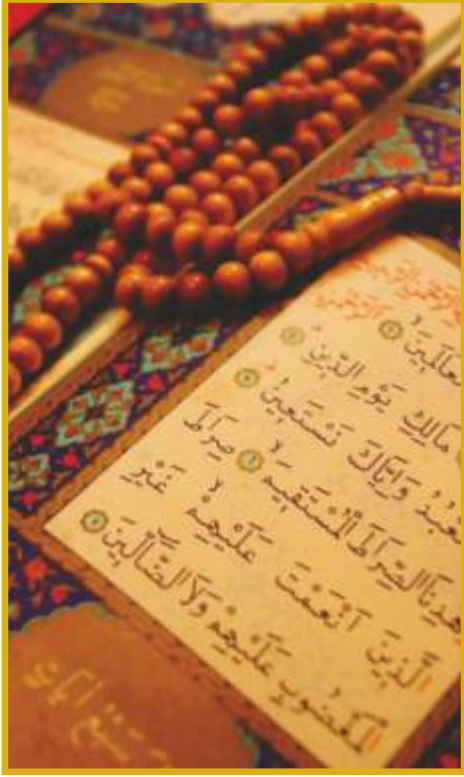 الرَّحْمٰنِ الرَّحِيمِ
لْعَالَمِينَ
مَالِكِ يَوْمِ الدِّينِ
عْبُدُ وَاِيَّاكَ نَسْتَعِينُ
هْدِنَا الصِّرَاطَ الْمُسْتَقِيمَ صِرَاطَ
الَّذِينَ اَنْعَمْتَ عَلَيْهِمْ غَيْرِ
الْمَغْضُوبِ عَلَيْهِمْ وَلَا الضَّٓالِّينَ
سَبْعُ اٰيَاتٍ